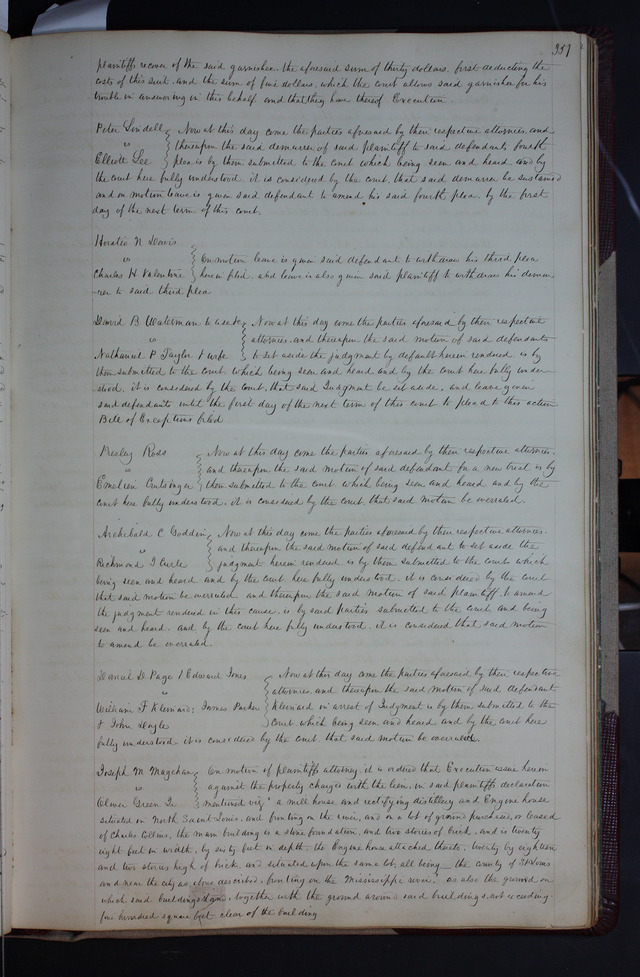 357
plaintiffs recover of the said garnishee, the aforesaid sum of thirty dollars, first deducting the
costs of this suit, and the sum of five dollars, which the court allows said garnishee for his
trouble in answering in this behalf and that they have thereof Execution
Peter Lindell Now at this day come the parties aforesaid by their respective attornies, and
vs thereupon the said demurrer of said plaintiff to said defendant fourth
Elliott Lee plea is by them submitted to the court which being seen and heard and by
the court here fully understood, it is considered by the court, that said demurrer be sustained
and on motion leave is given said defendant to amend his said fourth plea, by the first
day of the next term of this court.
Horatio N Davis
vs On motion leave is given said defendant to withdraw his third plea
Charles H Valentine herein filed, and leave is also given said plaintiff to withdraw his demur-
-rer to said third plea
David B Waterman to use &c Now at this day come the parties aforesaid by their respective
vs attornies, and thereupon the said motion of said defendants
Nathaniel P Taylor & wife to set aside the judgment by default herein rendered is by
them submitted to the court, which being seen and heard and by the court here fully under-
stood, it is considered by the court, that said Judgment be set aside, and leave given
said defendants until the first day of the next term of this court to plead to this action
Bill of Exceptions filed
Presley Ross Now at this day come the parties aforesaid by their respective attornies,
vs and thereupon the said motion of said defendant for a new trial is by
them submitted to the court which being seen and heard and by the
court here fully understood, it is considered by the court, that said motion be overruled.
Archibald C Goddin Now at this day come the parties aforesaid by their respective attornies.
vs and thereupon the said motion of said defendant to set aside the
Richmond J Curle judgment herein rendered, is by them submitted to the court, which
being seen and heard and by the court here fully understood, it is considered by the court
that said motion be overruled and thereupon the said motion of said plaintiff, to amend
the judgment rendered in this cause, is by said parties submitted to the court and being
seen and heard, and by the court here fully understood, it is considered that said motion
to amend be overruled.
Daniel D Page & Edward Jones Now at this day come the parties aforesaid by their respective
vs attornies, and thereupon the said motion of said defendant
William F Kleinard: James Parker Kleinard in arrest of Judgment is by them submitted to the
& John Doyle Court which being seen and heard and by the court here
fully understood, it is considered by the court that said motion be overruled.
Joseph M Magehan On motion of plaintiffs attorney, it is ordered that Execution issue herein
vs against the property charged with the lien, in said plaintiffs declaration
Green Jr mentioned viz "a mill house and rectifying distillery and Engine house
situated in North Saint Louis, and fronting on the river, and on a lot of ground purchased, or leased
of Charles Collins, the main building is a stone foundation, and two stories of brick, and is twenty
eight feet in width, by sixty feet in depth, the Engine house attached thereto, twenty by eighteen
and two stories high of brick, and situated upon the same lot, all being the county of St Louis
and near the city as above described, fronting on the Mississippi river," as also the ground, on
which said buildings stand, together with the ground around said buildings, not exceeding
five hundred square feet clear of the building